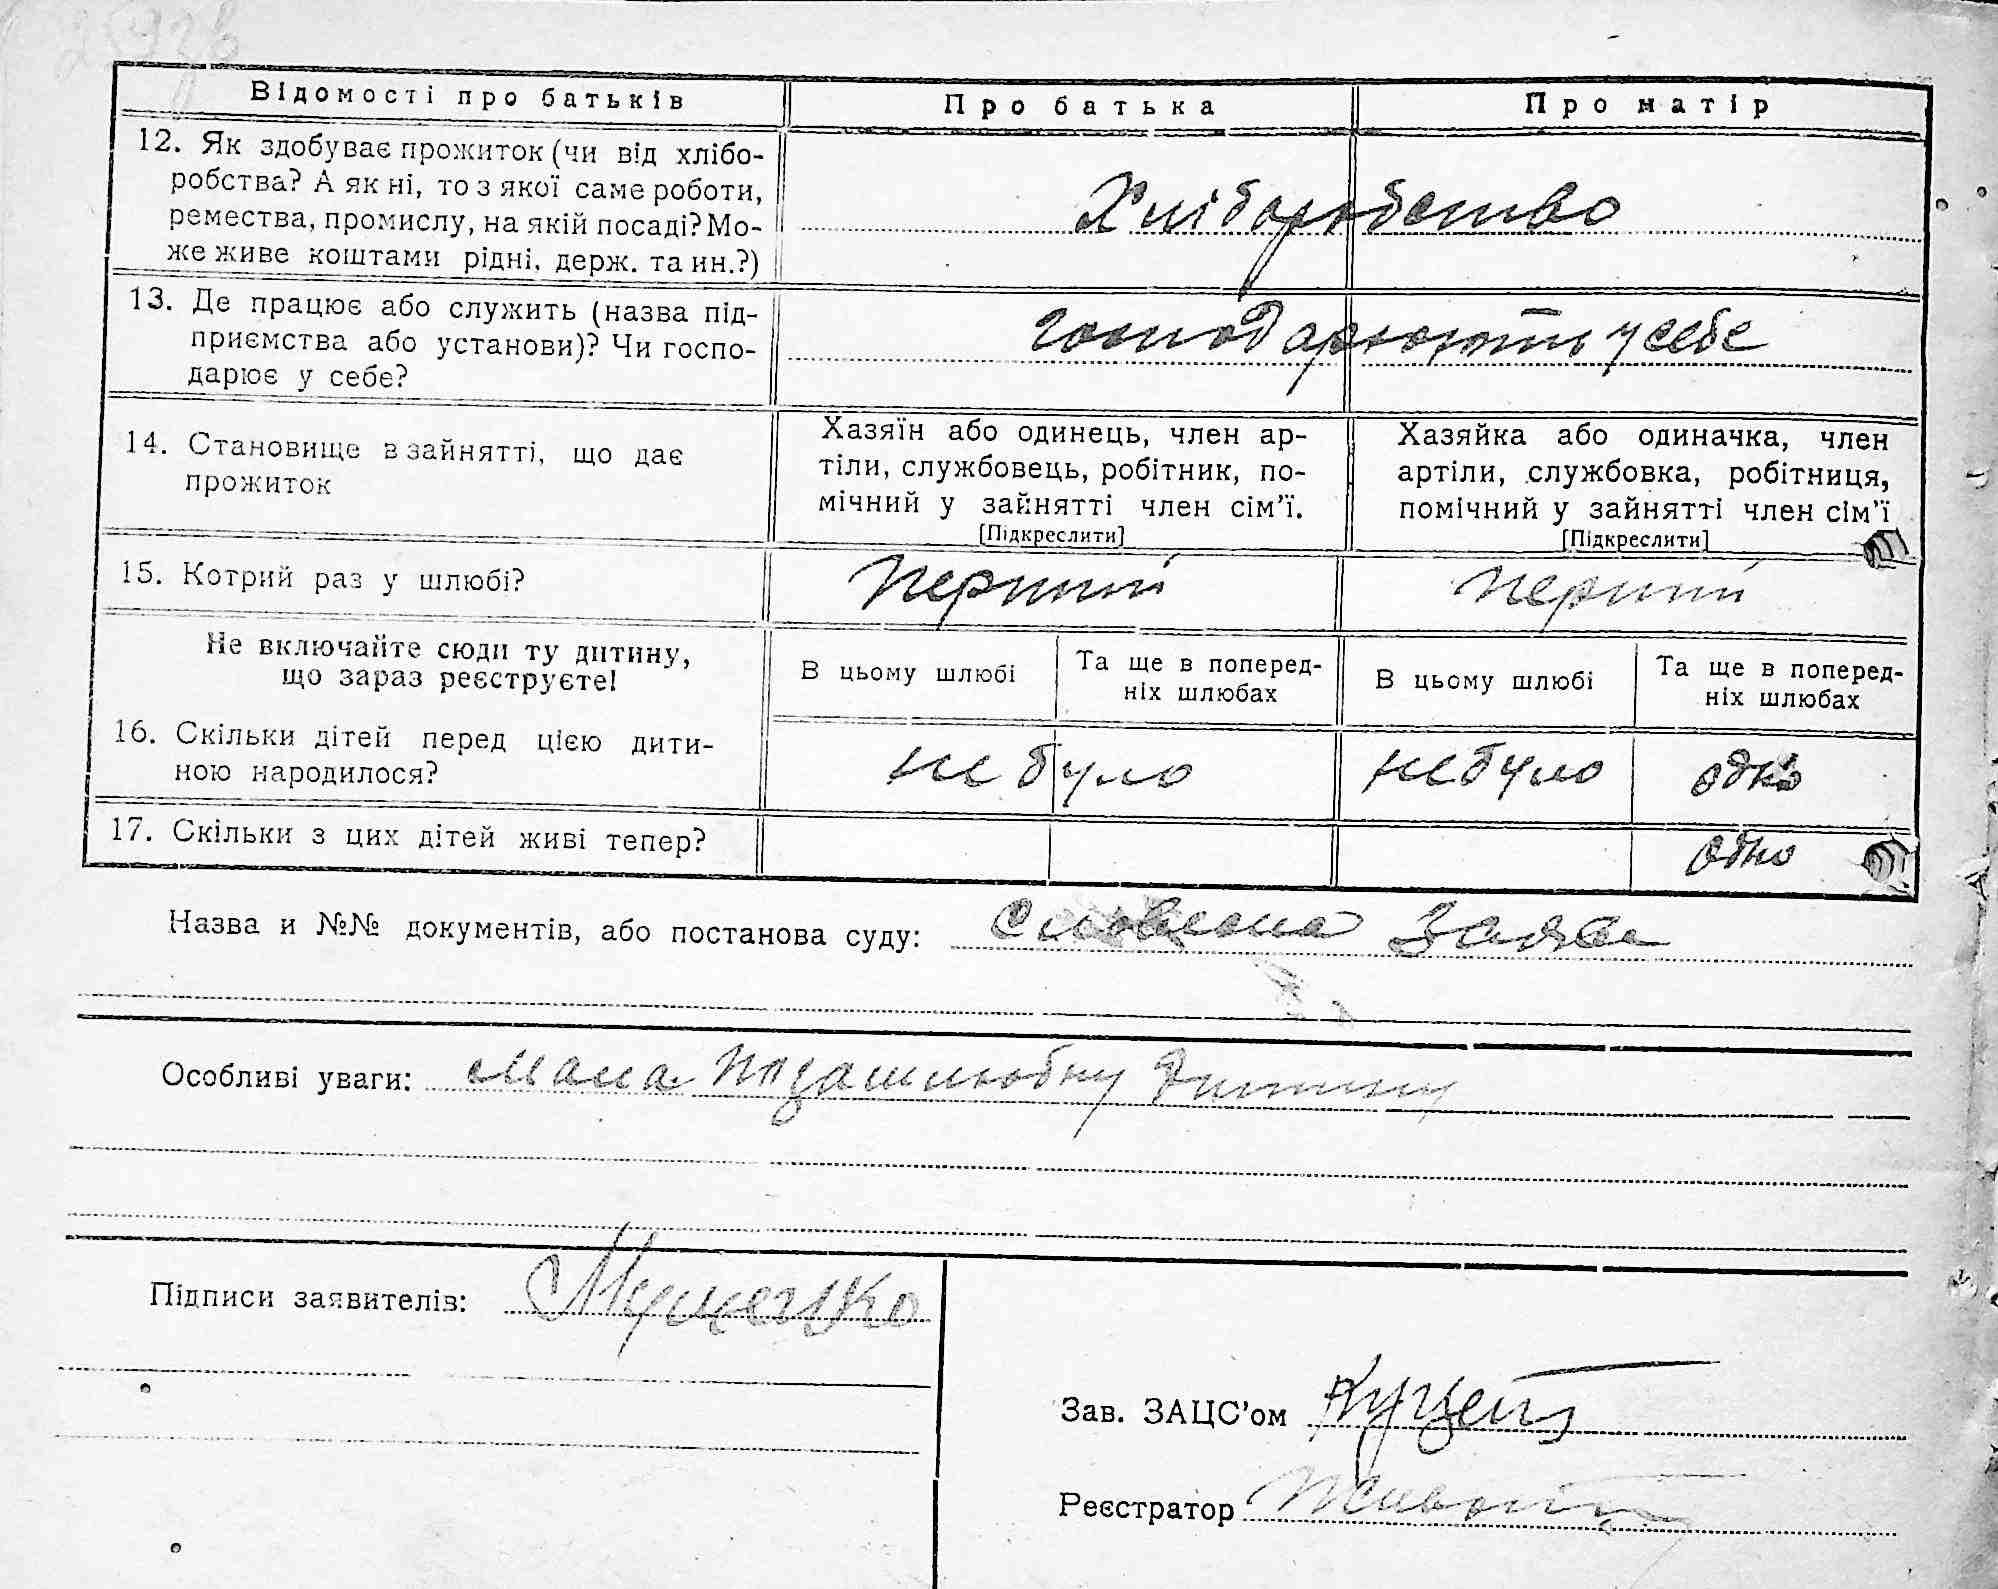 Відомості про батьків
Про батька
Про матір
12. Як здобуває прожиток (чи від хлібо-
робства? А як ні, то з якої саме роботи,
ремества, промислу, на якій посаді? Мо-
же живе коштами рідні, держ. та ин.?)
Хліборобство
13. Де працює або служить (назва під-
приємства або установи)? Чи госпо-
дарює у себе?
господарюють у себе
14. Становище в зайнятті, що дає
прожиток
Хазяїн або одинець, член ар-
тіли, службовець, робітник, по-
мічний у зайнятті член сім'ї.
[Підкреслити]
Хазяйка або одиначка, член
артіли, службовка, робітниця,
помічний у зайнятті член сім'ї
[Підкреслити]
15. Котрий раз у шлюбі?
перший
перший
Не включайте сюди ту дитину,
що зараз реєструєте!
В цьому шлюбі
Та ще в поперед-
ніх шлюбах
В цьому шлюбі
Та ще в поперед-
ніх шлюбах
16. Скільки дітей перед цією дити-
ною народилося?
не було
не було
одно
17. Скільки з цих дітей живі тепер?
одно
Назва и №№ документів, або постанова суду: Словесна заява
Особливі уваги: мала позашлюбну дитину
Підписи заявителів:
Зав. ЗАЦС'ом
Реєстратор